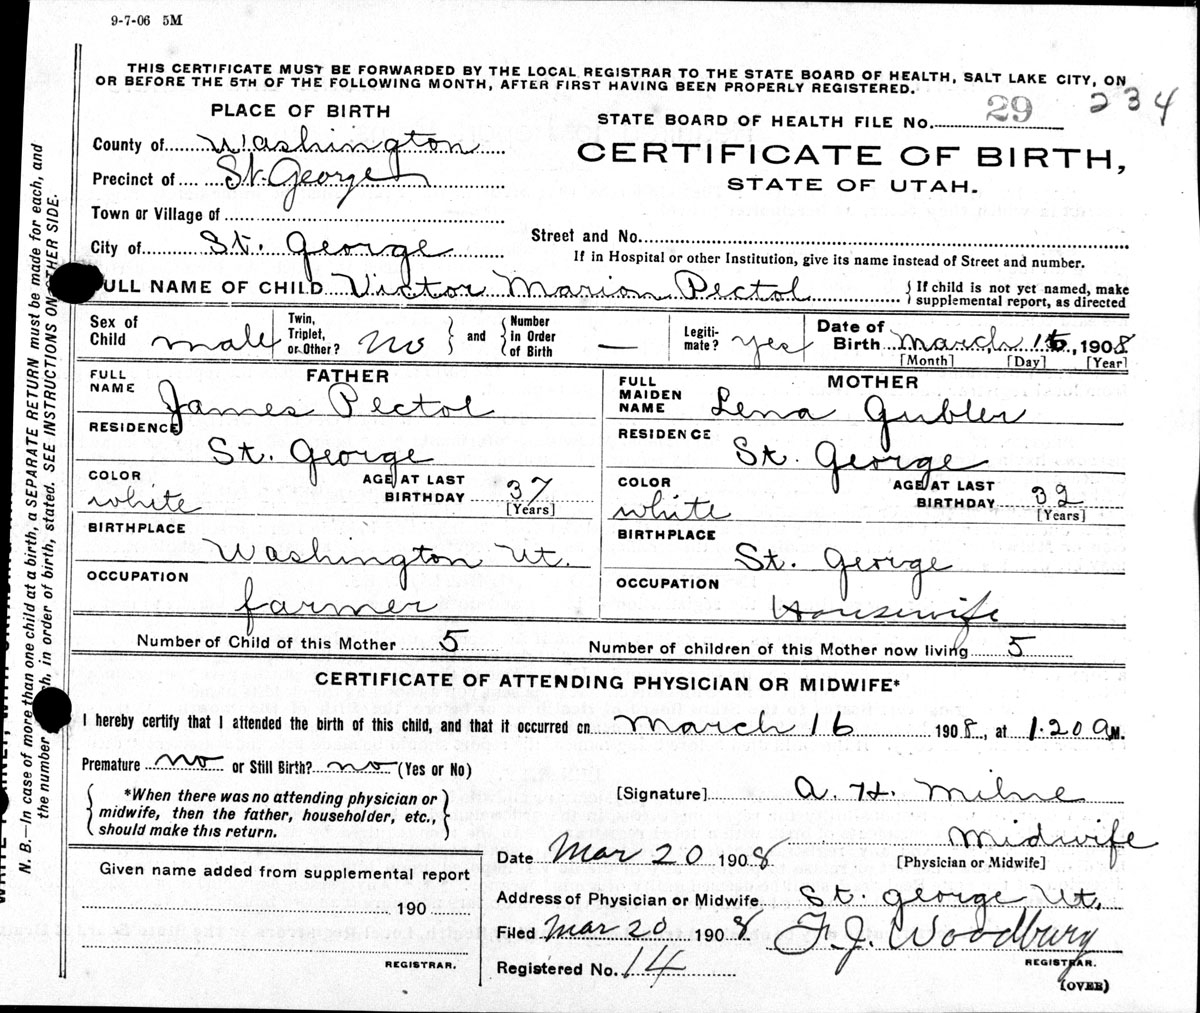 9-7-06 5M
THIS CERTIFICATE MUST BE FORWARDED BY THE LOCAL REGISTRAR TO THE STATE BOARD OF HEALTH, SALT LAKE CITY, ON
OR BEFORE THE 5TH OF THE FOLLOWING MONTH, AFTER FIRST HAVING BEEN PROPERLY REGISTERED.
PLACE OF BIRTH
STATE BOARD OF HEALTH FILE No. 29 234
County of Washington
CERTIFICATE OF BIRTH,
Precinct of St. George
STATE OF UTAH.
Town or Village of
City of St. George
Street and No.
If in Hospital or other Institution, give its name instead of Street and number.
FULL NAME OF CHILD Victor Marion Pectol { If child is not yet named, make
supplemental report, as directed
Sex of Child male Twin, Triplet, or Other? No } and { Number in Order of Birth — Legiti-mate? yes Date of Birth March 16, 1908
[Month] [Day] [Year]
FATHER
FULL NAME James Pectol
RESIDENCE St. George
COLOR white AGE AT LAST BIRTHDAY 37 [Years]
BIRTHPLACE Washington Ut.
OCCUPATION farmer
MOTHER
FULL MAIDEN NAME Lena Gubler
RESIDENCE St. George
COLOR white AGE AT LAST BIRTHDAY 32 [Years]
BIRTHPLACE St. George
OCCUPATION Housewife
Number of Child of this Mother 5 Number of children of this Mother now living 5
CERTIFICATE OF ATTENDING PHYSICIAN OR MIDWIFE*
I hereby certify that I attended the birth of this child, and that it occurred on March 16 1908, at 1.20 a M.
Premature no or Still Birth? no (Yes or No)
*When there was no attending physician or
midwife, then the father, householder, etc.,
should make this return.
[Signature] A. H. Milne
Midwife
[Physician or Midwife]
Date Mar 20 1908
Address of Physician or Midwife St. George Ut.
Filed Mar 20 1908 F. J. Woodbury
REGISTRAR.
Registered No. 14
(OVER)
Given name added from supplemental report
190
REGISTRAR.
N. B.—In case of more than one child at a birth, a SEPARATE RETURN must be made for each, and
the number in order of birth, stated. SEE INSTRUCTIONS ON OTHER SIDE.